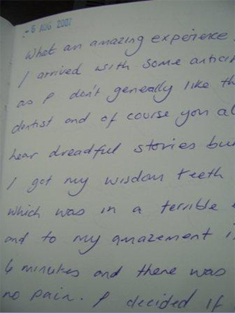 6 AUG 2001
What an amazing experience
I arrived with some
as I don't generally like the
dentist and of course you
hear dreadful stories but
I got my wisdom teeth
which was in a terrible
and to my amazement
6 minutes and there was
no pain. I decided if